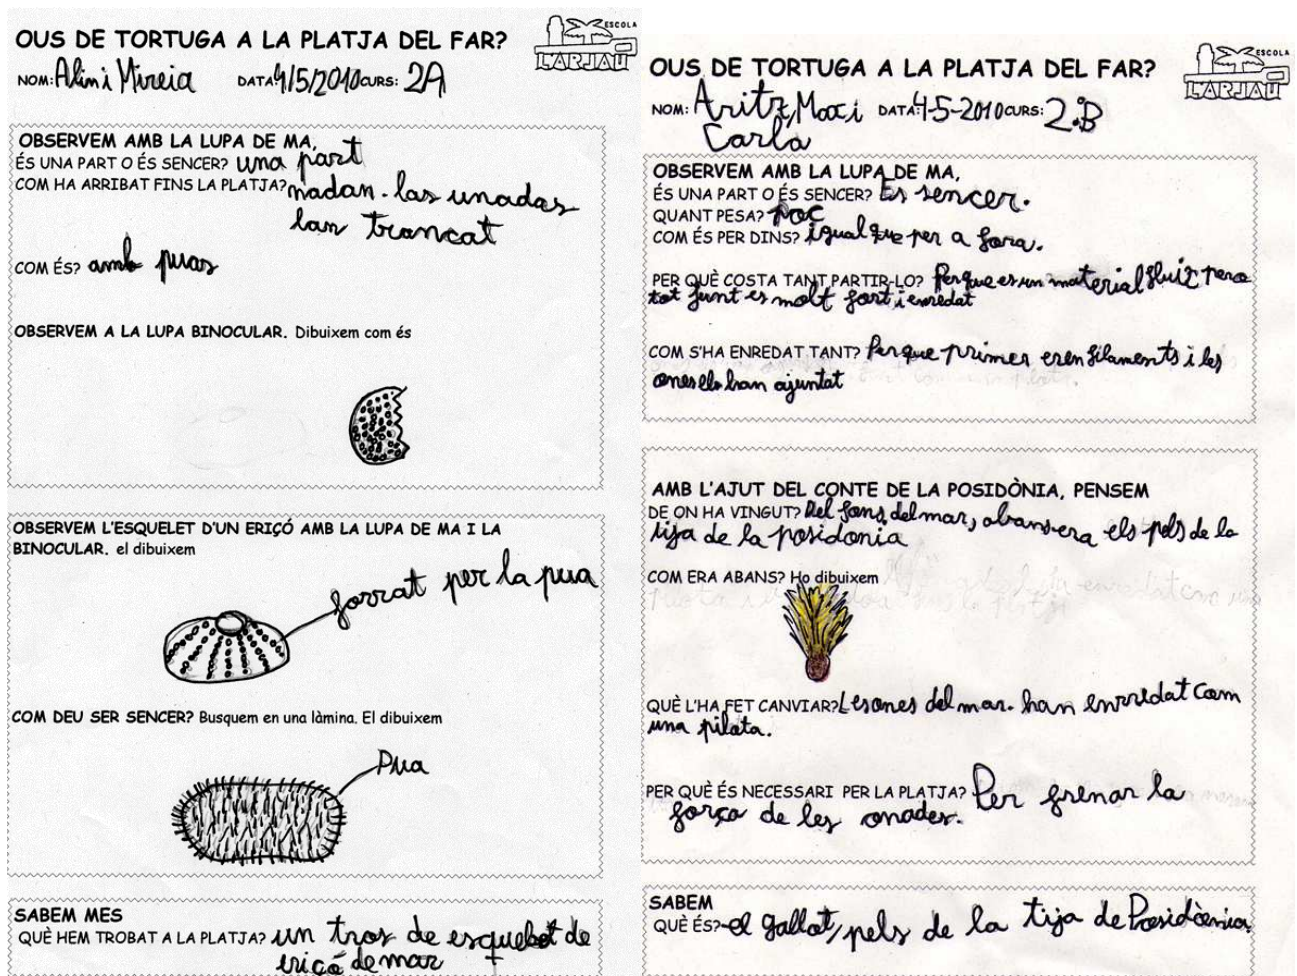 OUS DE TORTUGA A LA PLATJA DEL FAR?
ESCOLA
L'ARJAU
NOM: Alim i Mireia DATA: 4/5/2010 CURS: 2A
OBSERVEM AMB LA LUPA DE MA,
ÉS UNA PART O ÉS SENCER? una part
COM HA ARRIBAT FINS LA PLATJA? nadan. las unadas
lan trancat
COM ÉS? amb puas
OBSERVEM A LA LUPA BINOCULAR. Dibuixem com és
OBSERVEM L'ESQUELET D'UN ERIÇÓ AMB LA LUPA DE MA I LA
BINOCULAR. el dibuixem
forrat per la pua
COM DEU SER SENCER? Busquem en una làmina. El dibuixem
Pua
SABEM MES
QUÈ HEM TROBAT A LA PLATJA? un tros de esquelet de
eriçó de mar
OUS DE TORTUGA A LA PLATJA DEL FAR?
ESCOLA
L'ARJAU
NOM: Aritz, Max i DATA: 4-5-2010 CURS: 2.B
Carla
OBSERVEM AMB LA LUPA DE MA,
ÉS UNA PART O ÉS SENCER? Es sencer.
QUANT PESA? poc
COM ÉS PER DINS? igual que per a fora.
PER QUÈ COSTA TANT PARTIR-LO? Perque es un material fluix pero
tot junt es molt fort i enredat
COM S'HA ENREDAT TANT? Perque primer eren filaments i les
ones els han ajuntat
AMB L'AJUT DEL CONTE DE LA POSIDÒNIA, PENSEM
DE ON HA VINGUT? Del fons del mar, abans era els pels de la
tija de la posidonia
COM ERA ABANS? Ho dibuixem
QUÈ L'HA FET CANVIAR? Les ones del mar. han enrredat com
una pilota.
PER QUÈ ÉS NECESSARI PER LA PLATJA? Per frenar la
força de les onades.
SABEM
QUÈ ÉS? el gallot, pels de la tija de Posidònica